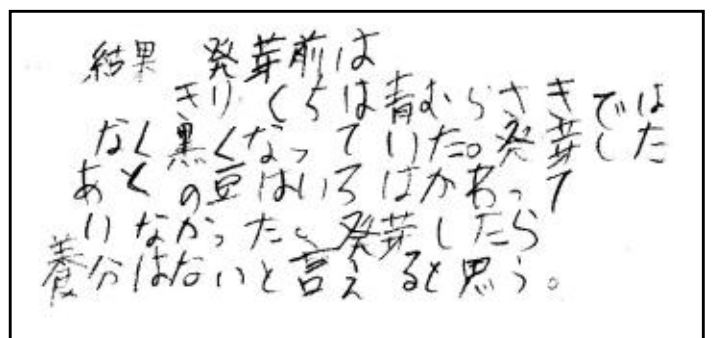 結果 発芽前は
きりくちは青むらさきでは
なく黒くなっていた。発芽した
あとの豆はいろはかわって
いなかった。発芽したら
養分はないと言えると思う。